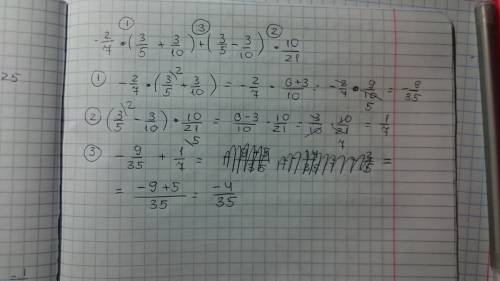 25
① ③ ②
-2/7 • (3/5 + 3/10) + (3/5 - 3/10) • 10/21
① -2/7 • (3/5\2 + 3/10) = -2/7 • 6+3/10 = -2/7 • 9/10 5 = -9/35
② (3/5\2 - 3/10) • 10/21 = 6-3/10 • 10/21 = 3/10 • 10/21 7 = 1/7
③ -9/35 + 1/7\5 = =
= -9+5/35 = -4/35
-1